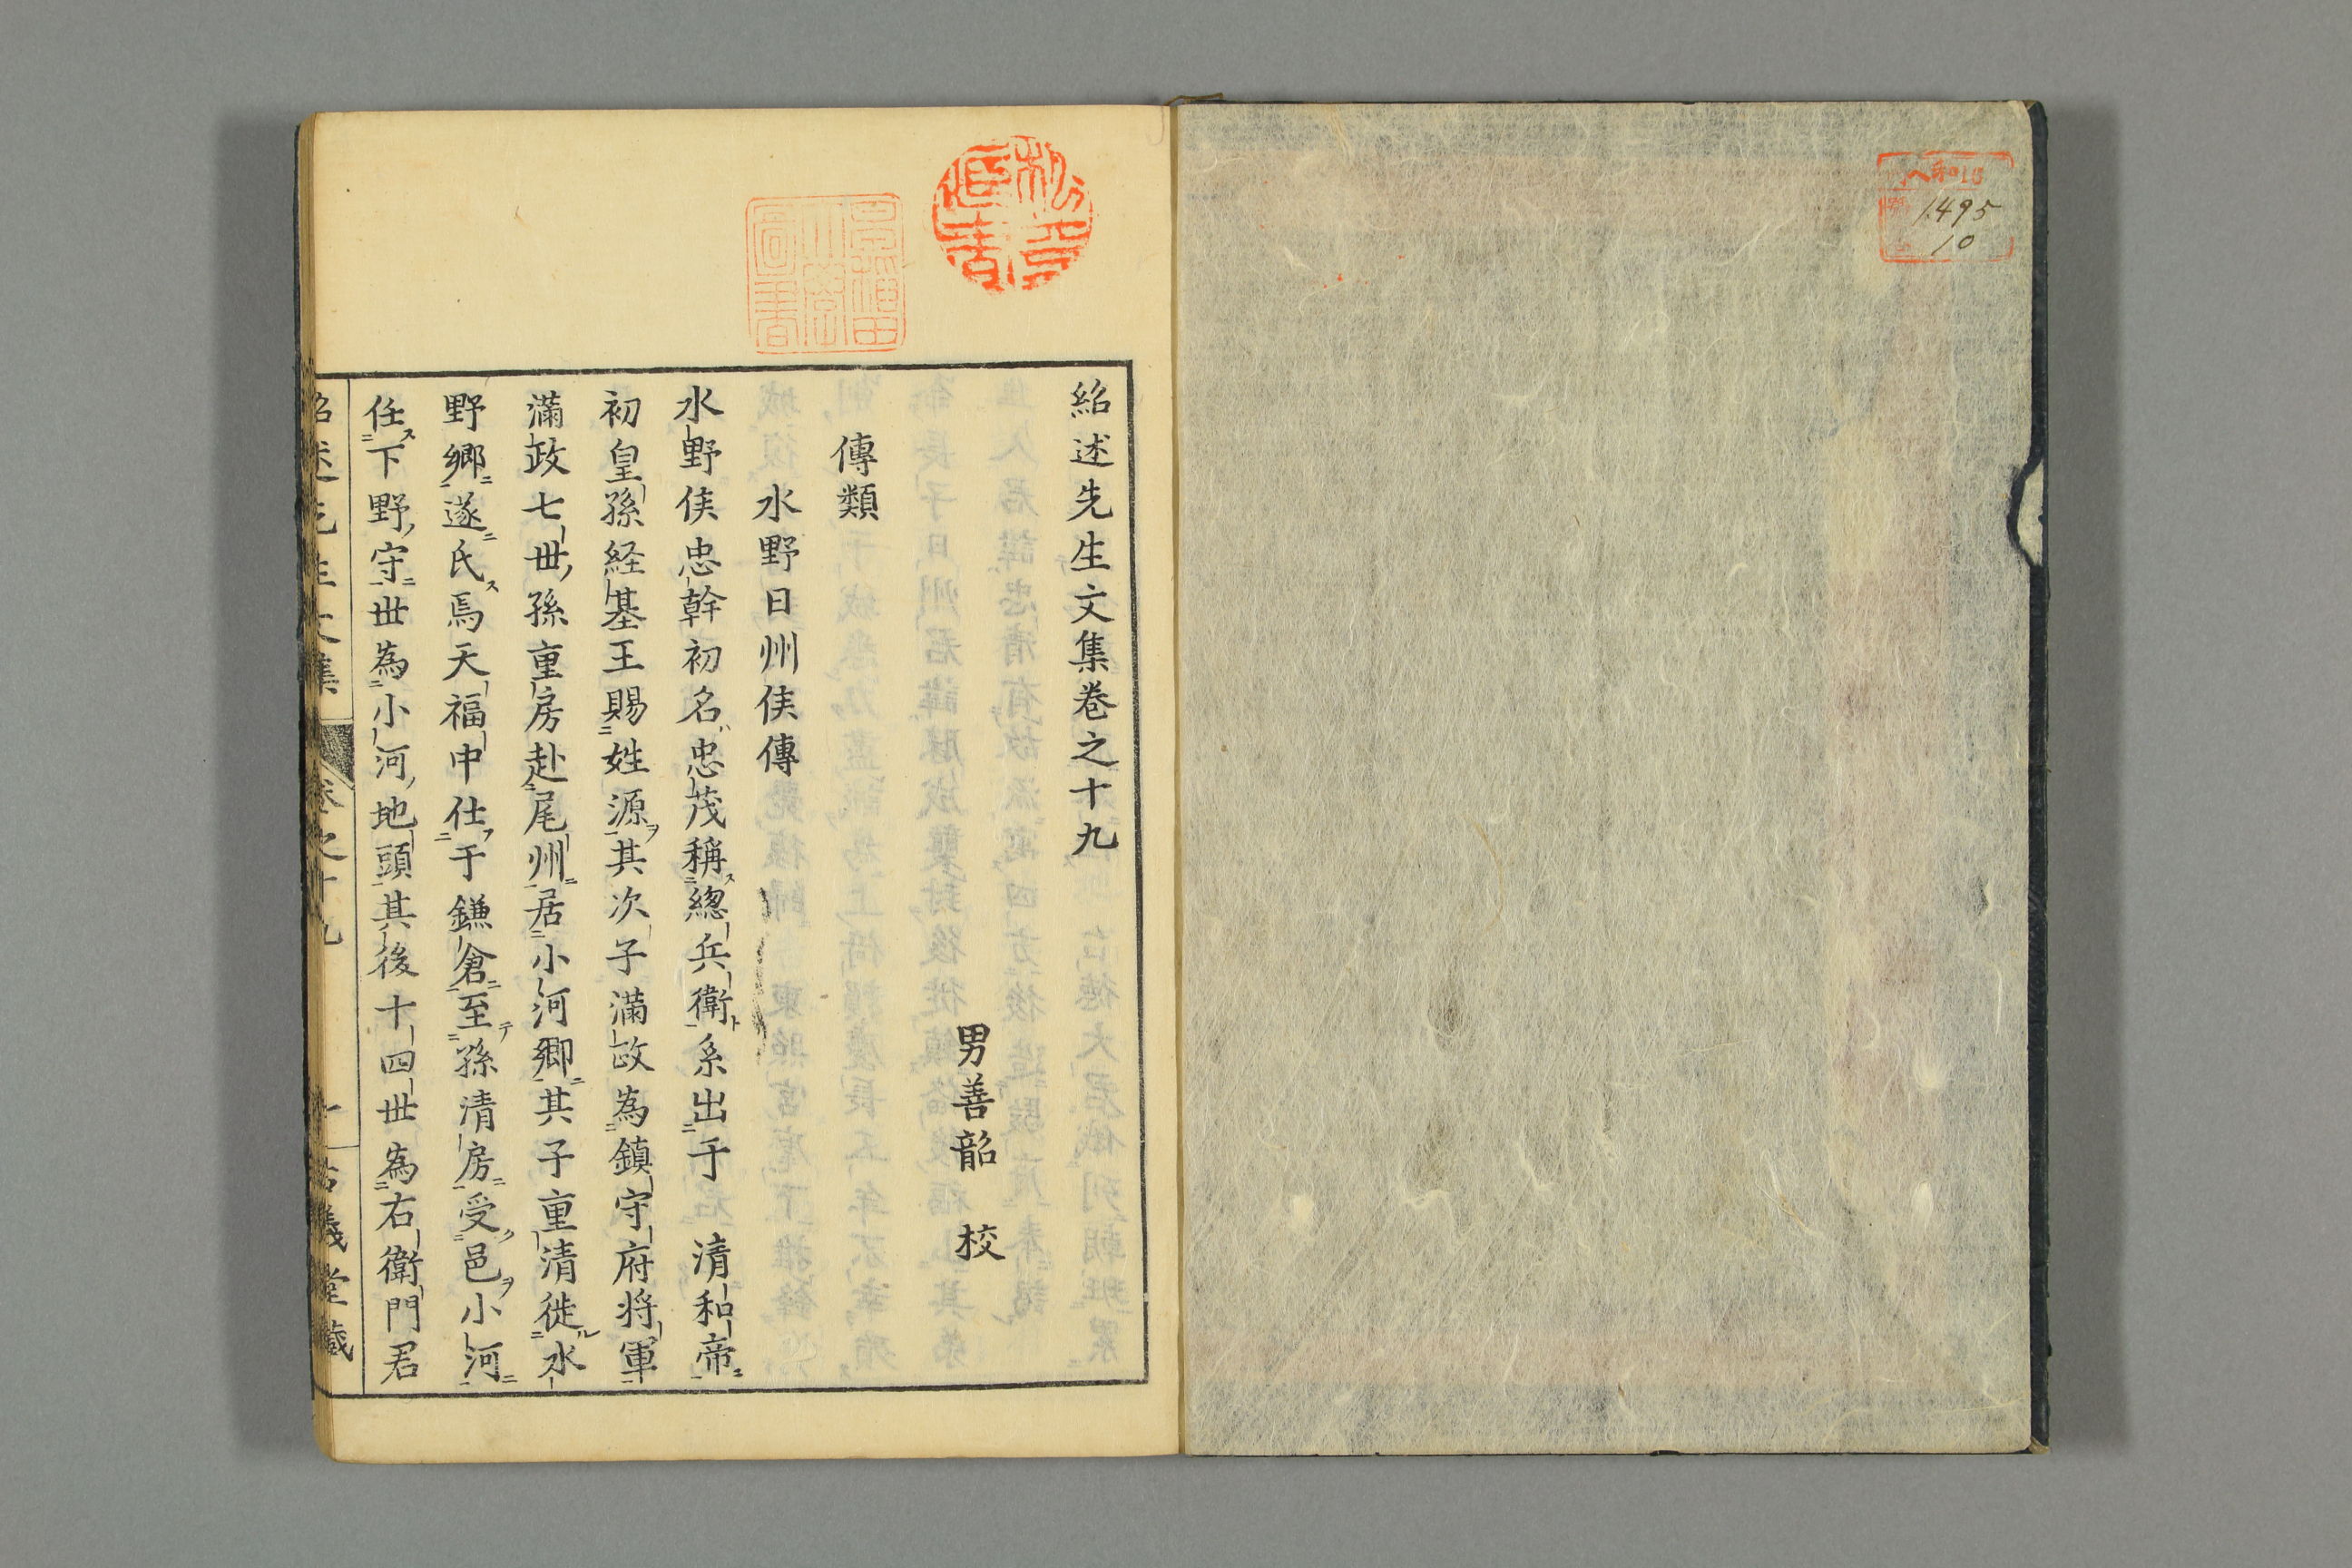 八和18
1495
10
紹述先生文集卷之十九
男善韶 校
傳類
水野日州侯傳
水野侯忠幹初名忠茂稱總兵衛系出于 清和帝
初皇孫経基王賜姓源其次子滿政為鎮守府将軍
滿政七世孫重房赴尾州居小河郷其子重清徙水
野郷遂氏焉天福中仕于鎌倉至孫清房受邑小河
任下野守世為小河地頭其後十四世為右衛門君
紹述先生文集 卷之十九 一 古義堂藏